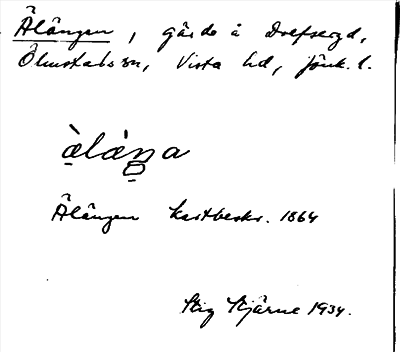 Ålängen, gärde å Drefseryd,
Ölmstads sn, Vista hd, Jönk. l.
àlàŋa
Ålängen kartbeskr. 1864
Stig Stjärne 1934.